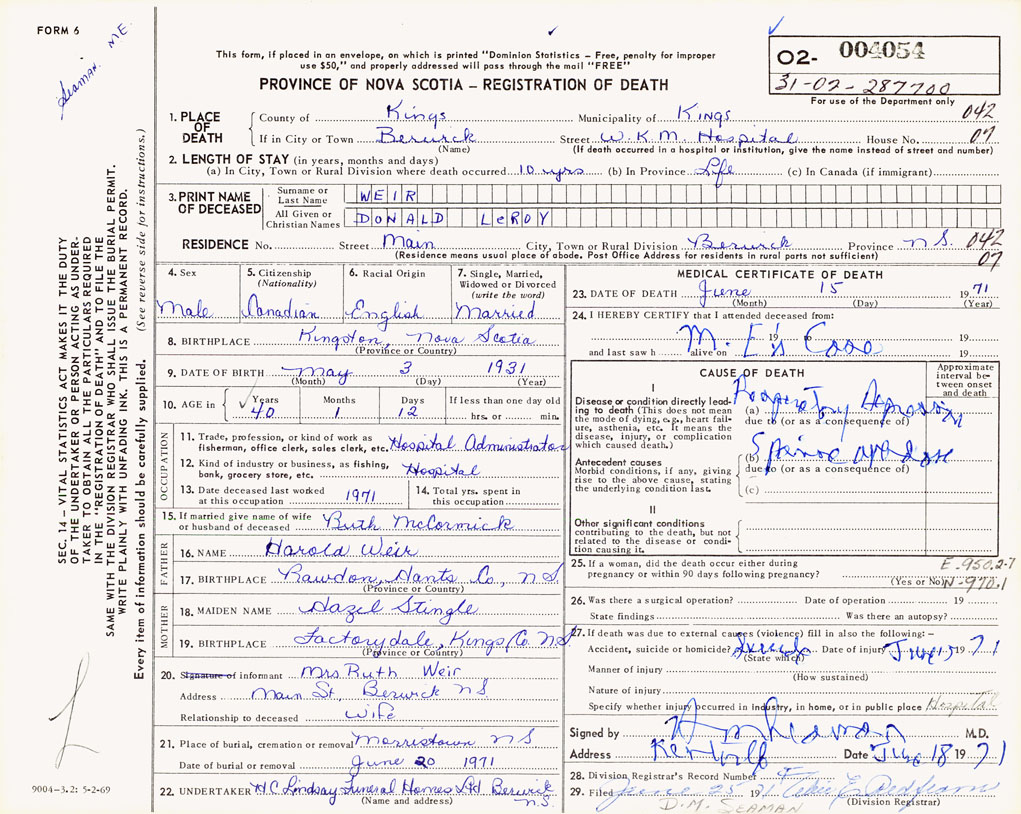 FORM 6
Seaman, M.E.
This form, if placed in an envelope, on which is printed "Dominion Statistics – Free, penalty for improper
use $50," and properly addressed will pass through the mail "FREE"
PROVINCE OF NOVA SCOTIA – REGISTRATION OF DEATH
02- 004054
31-02-287700
For use of the Department only
SEC. 14 – VITAL STATISTICS ACT MAKES IT THE DUTY
OF THE UNDERTAKER OR PERSON ACTING AS UNDER-
TAKER TO OBTAIN ALL THE PARTICULARS REQUIRED
IN THE "REGISTRATION OF DEATH" AND TO FILE THE
SAME WITH THE DIVISION REGISTRAR WHO SHALL ISSUE THE BURIAL PERMIT.
WRITE PLAINLY WITH UNFADING INK. THIS IS A PERMANENT RECORD.
Every item of information should be carefully supplied. (See reverse side for instructions.)
1. PLACE OF DEATH County of Kings Municipality of Kings 042
If in City or Town Berwick Street W.K.M. Hospital House No. 07
(Name) (If death occurred in a hospital or institution, give the name instead of street and number)
2. LENGTH OF STAY (in years, months and days)
(a) In City, Town or Rural Division where death occurred 10 yrs (b) In Province Life (c) In Canada (if immigrant)
3. PRINT NAME OF DECEASED Surname or Last Name WEIR
All Given or Christian Names DONALD LeROY
RESIDENCE No. Street Main City, Town or Rural Division Berwick Province N.S. 042
(Residence means usual place of abode. Post Office Address for residents in rural parts not sufficient) 07
4. Sex 5. Citizenship (Nationality) 6. Racial Origin 7. Single, Married, Widowed or Divorced (write the word)
Male Canadian English Married
8. BIRTHPLACE Kingston, Nova Scotia
(Province or Country)
9. DATE OF BIRTH May 3 1931
(Month) (Day) (Year)
10. AGE in Years Months Days If less than one day old
40 1 12 hrs. or min.
OCCUPATION
11. Trade, profession, or kind of work as
fisherman, office clerk, sales clerk, etc. Hospital Administrator
12. Kind of industry or business, as fishing,
bank, grocery store, etc. Hospital
13. Date deceased last worked at this occupation 1971 14. Total yrs. spent in this occupation
15. If married give name of wife
or husband of deceased Ruth McCormick
FATHER
16. NAME Harold Weir
17. BIRTHPLACE Rawdon, Hants Co., N.S.
(Province or Country)
MOTHER
18. MAIDEN NAME Hazel Stingle
19. BIRTHPLACE Factorydale, Kings Co. N.S.
(Province or Country)
20. Signature of informant Mrs Ruth Weir
Address Main St, Berwick NS
Relationship to deceased Wife
21. Place of burial, cremation or removal Morristown NS
Date of burial or removal June 20 1971
22. UNDERTAKER H C Lindsay Funeral Homes Ltd Berwick N.S.
(Name and address)
9004-3.2: 5-2-69
MEDICAL CERTIFICATE OF DEATH
23. DATE OF DEATH June 15 1971
(Month) (Day) (Year)
24. I HEREBY CERTIFY that I attended deceased from:
M. E's Case 19 19
and last saw h alive on 19
CAUSE OF DEATH
Approximate interval between onset and death
I
Disease or condition directly lead-
ing to death (This does not mean
the mode of dying, e.g., heart fail-
ure, asthenia, etc. It means the
disease, injury, or complication
which caused death.)
(a) Respiratory depression
due to (or as a consequence of)
Antecedent causes
Morbid conditions, if any, giving
rise to the above cause, stating
the underlying condition last.
(b)
due to (or as a consequence of)
(c)
II
Other significant conditions
contributing to the death, but not
related to the disease or condi-
tion causing it.
25. If a woman, did the death occur either during
pregnancy or within 90 days following pregnancy?
(Yes or No)
E-950.2-7
N-970.1
26. Was there a surgical operation? Date of operation 19
State findings Was there an autopsy?
27. If death was due to external causes (violence) fill in also the following: –
Accident, suicide or homicide? Suicide Date of injury June 15 1971
(State which)
Manner of injury
(How sustained)
Nature of injury
Specify whether injury occurred in industry, in home, or in public place Hospital
Signed by M.D.
Address Kentville Date June 18 1971
28. Division Registrar's Record Number
29. Filed June 25 1971
(Division Registrar)
D.M. SEAMAN